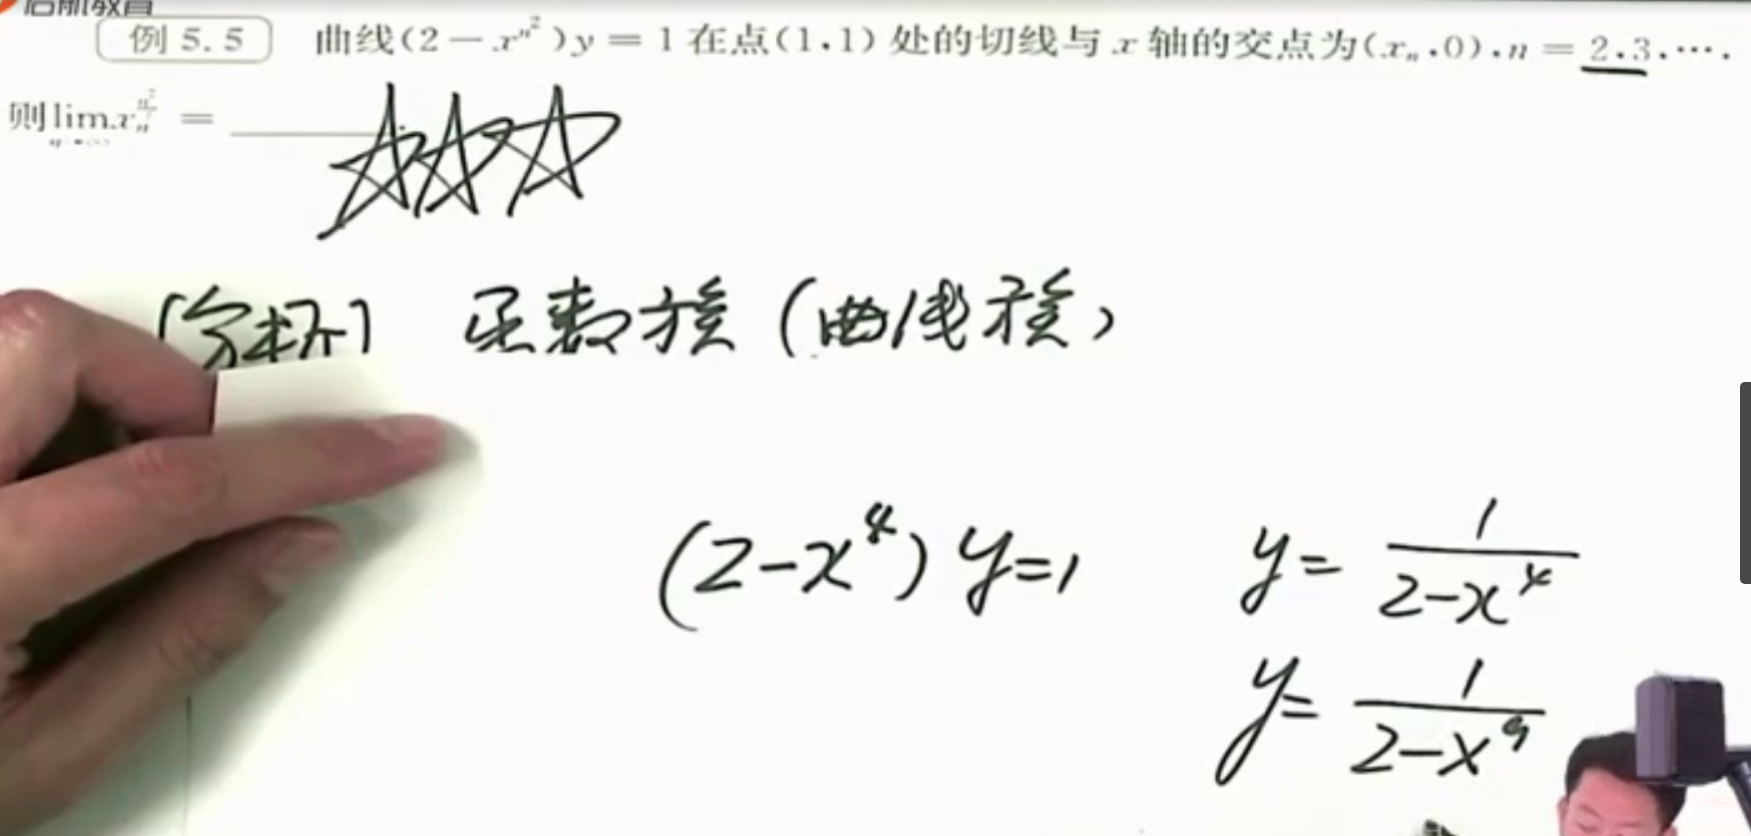 启航教育
例 5.5 曲线(2－xⁿ²)y = 1 在点(1,1) 处的切线与 x 轴的交点为(xₙ,0),n = 2,3,⋯,
则 lim xₙⁿ² = ______
n→∞
[分析] 函数族 (曲线族)
(2-x⁴) y=1 y= 1/(2-x⁴)
y= 1/(2-x⁹)